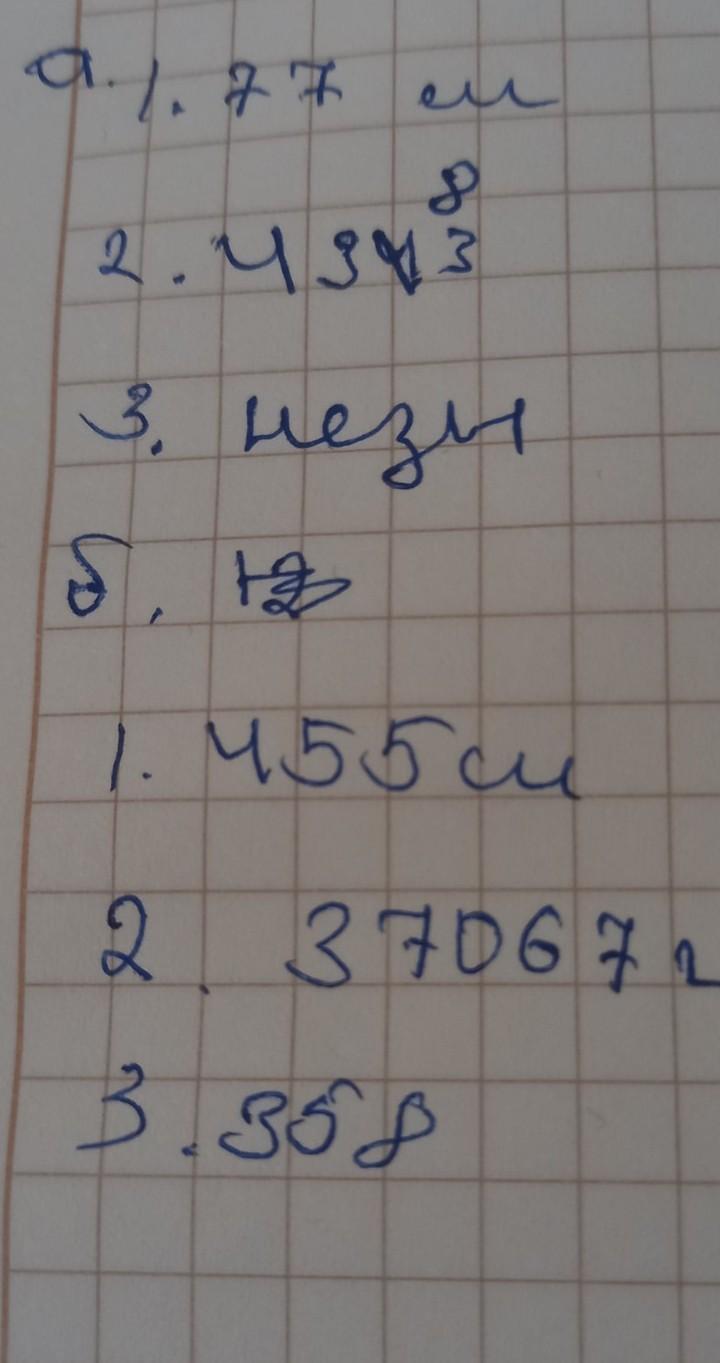 а. 1. 77 см
8
2. 4343
3. незн
б.
1. 455 см
2. 37067 г
3. 358